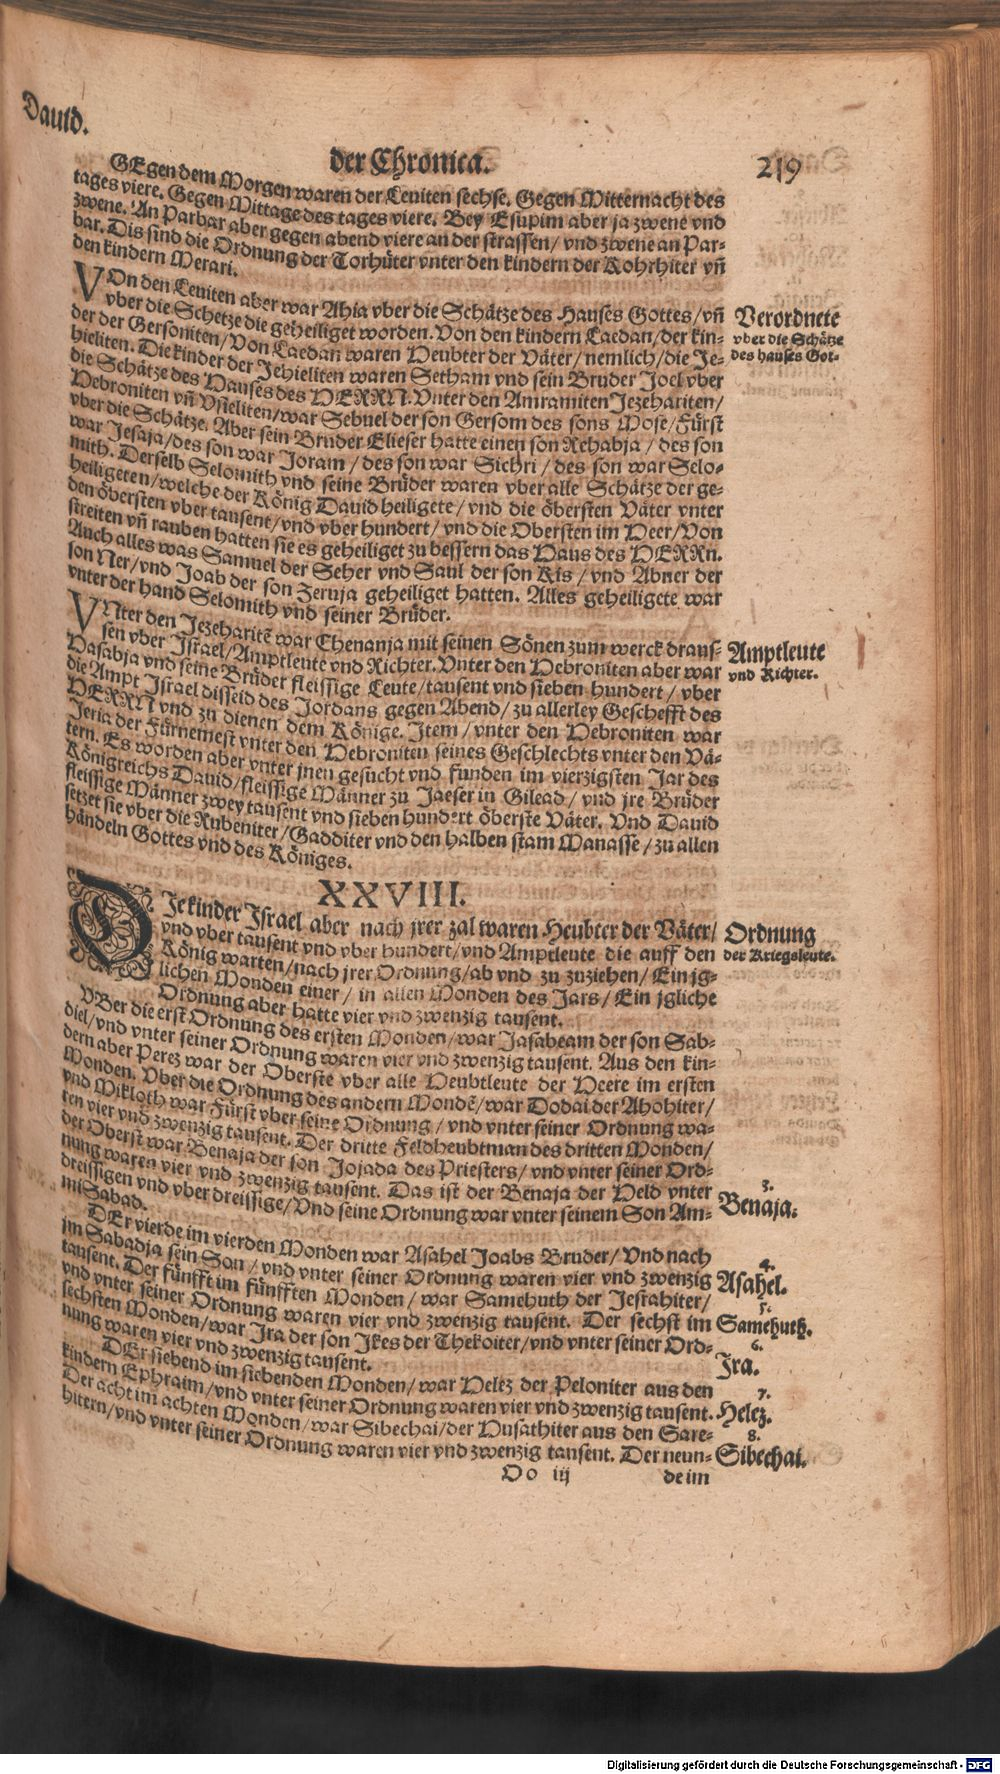 Dauid.
der Chronica.
219
GEgen dem Morgen waren der Leuiten sechse. Gegen Mitternacht des
tages viere. Gegen Mittage des tages viere. Bey Esupim aber ja zwene vnd
zwene. An Parbar aber gegen abend viere an der strassen/ vnd zwene an Par-
bar. Dis sind die Ordnung der Torhüter vnter den kindern der Korhiter vñ
den kindern Merari.
VOn den Leuiten aber war Ahia vber die Schätze des Hauses Gottes/ vñ
vber die Schetze die geheiliget worden. Von den kindern Laedan/ der kin-
der der Gersoniten/ Von Laedan waren Heubter der Väter/ nemlich/ die Je-
hieliten. Die kinder der Jehieliten waren Setham vnd sein Bruder Joel vber
die Schätze des Hauses des HERRN. Vnter den Amramiten Jezehariten/
Hebroniten vñ Vsieliten/ war Sebuel der son Gersom des sons Mose/ Fürst
vber die Schätze. Aber sein Bruder Elieser hatte einen son Rehabja/ des son
war Jesaja/ des son war Joram/ des son war Sichri/ des son war Selo-
mith. Derselb Selomith vnd seine Brüder waren vber alle Schätze der ge-
heiligeten/ welche der König Dauid heiligete/ vnd die öbersten Väter vnter
den öbersten vber tausent/ vnd vber hundert/ vnd die Obersten im Heer/ Von
streiten vñ rauben hatten sie es geheiliget zu bessern das Haus des HERRn.
Auch alles was Samuel der Seher vnd Saul der son Kis/ vnd Abner der
son Ner/ vnd Joab der son Zeruja geheiliget hatten. Alles geheiligete war
vnter der hand Selomith vnd seiner Brüder.
Verordnete
vber die Schätze
des hauses Got-
VNter den Jezeharitē war Chenanja mit seinen Sönen zum werck draus-
sen vber Israel/ Amptleute vnd Richter. Vnter den Hebroniten aber war
Hasabja vnd seine Brüder fleissige Leute/ tausent vnd sieben hundert/ vber
die Ampt Israel disseid des Jordans gegen Abend/ zu allerley Geschefft des
HERRN vnd zu dienen dem Könige. Item/ vnter den Hebroniten war
Jeria der Fürnemest vnter den Hebroniten seines Geschlechts vnter den Vä-
tern. Es worden aber vnter jnen gesucht vnd funden im vierzigsten Jar des
Königreichs Dauid/ fleissige Männer zu Jaeser in Gilead/ vnd jre Brüder
fleissige Männer zwey tausent vnd sieben hundert öberste Väter. Vnd Dauid
setzet sie vber die Rubeniter/ Gadditer vnd den halben stam Manasse/ zu allen
händeln Gottes vnd des Königes.
Amptleute
vnd Richter.
XXVIII.
DIe kinder Israel aber nach jrer zal waren Heubter der Väter/
vnd vber tausent vnd vber hundert/ vnd Amptleute die auff den
König warten/ nach jrer Ordnung/ ab vnd zu zuziehen/ Ein jg-
lichen Monden einer/ in allen Monden des Jars/ Ein jgliche
Ordnung aber hatte vier vnd zwenzig tausent.
Ordnung
der Kriegsleute.
VBer die erst Ordnung des ersten Monden/ war Jasabeam der son Sab-
diel/ vnd vnter seiner Ordnung waren vier vnd zwenzig tausent. Aus den kin-
dern aber Perez war der Oberste vber alle Heubtleute der Heere im ersten
Monden. Vber die Ordnung des andern Mondē/ war Dodai der Ahohiter/
vnd Mikloth war Fürst vber seine Ordnung/ vnd vnter seiner Ordnung wa-
ren vier vnd zwenzig tausent. Der dritte Feldheubtman des dritten Monden/
der Oberst war Benaja der son Jojada des Priesters/ vnd vnter seiner Ord-
nung waren vier vnd zwenzig tausent. Das ist der Benaja der Held vnter
dreissigen vnd vber dreissige/ Vnd seine Ordnung war vnter seinem Son Am-
miSabad.
3.
Benaja.
DEr vierde im vierden Monden war Asahel Joabs Bruder/ Vnd nach
jm Sabadja sein Son/ vnd vnter seiner Ordnung waren vier vnd zwenzig
tausent. Der fünfft im fünfften Monden/ war Samehuth der Jesrahiter/
vnd vnter seiner Ordnung waren vier vnd zwenzig tausent. Der sechst im
sechsten Monden/ war Ira der son Ikes der Thekoiter/ vnd vnter seiner Ord-
nung waren vier vnd zwenzig tausent.
4.
Asahel.
5.
Samehuth.
6.
Ira.
DEr siebend im siebenden Monden/ war Helez der Peloniter aus den
kindern Ephraim/ vnd vnter seiner Ordnung waren vier vnd zwenzig tausent.
Der acht im achten Monden/ war Sibechai/ der Husathiter aus den Sare-
hitern/ vnd vnter seiner Ordnung waren vier vnd zwenzig tausent. Der neun-
7.
Helez.
8.
Sibechai.
Oo iij
de im
Digitalisierung gefördert durch die Deutsche Forschungsgemeinschaft - DFG